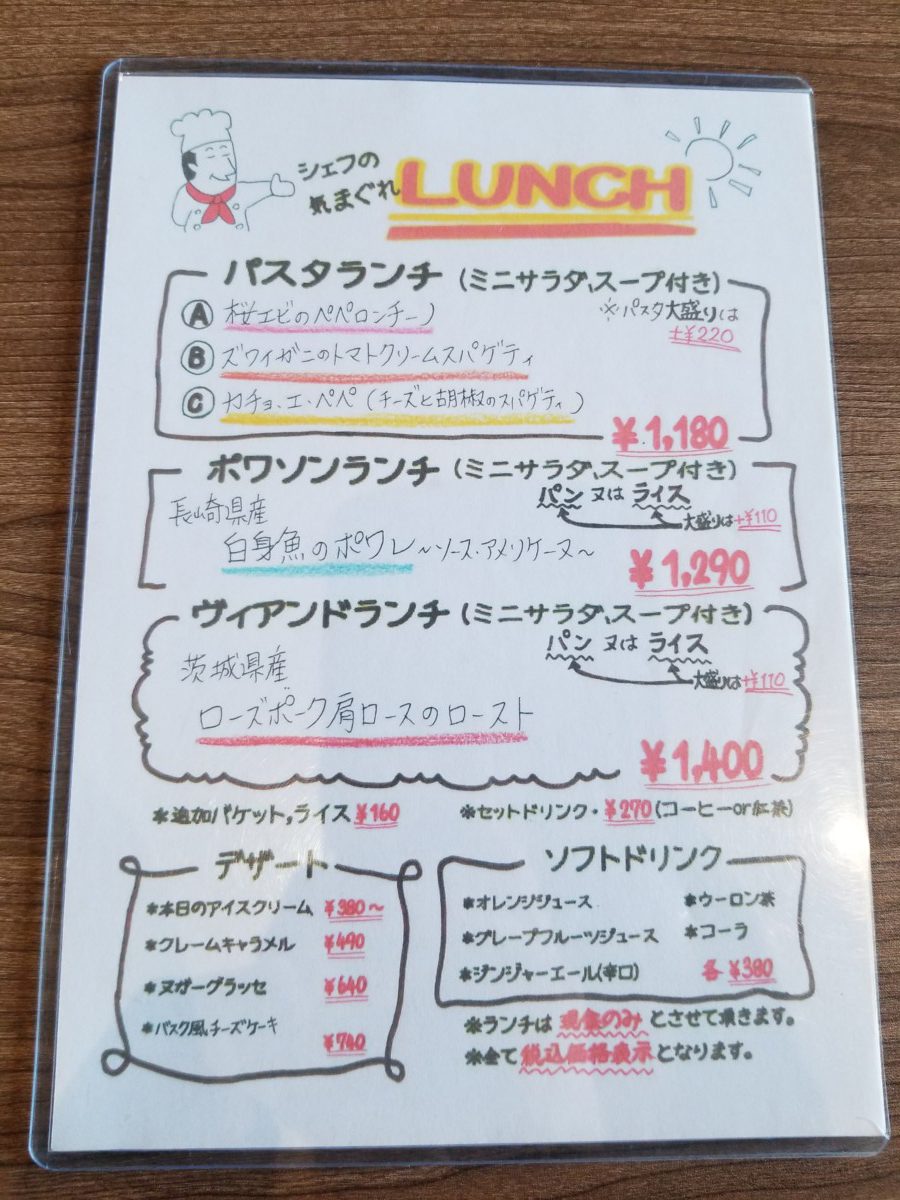 シェフの
気まぐれ LUNCH
パスタランチ (ミニサラダ、スープ付き)
Ⓐ 桜エビのペペロンチーノ
※パスタ大盛りは
+¥220
Ⓑ ズワイガニのトマトクリームスパゲティ
Ⓒ カチョ・エ・ペペ (チーズと胡椒のスパゲティ)
¥1,180
ポワソンランチ (ミニサラダ、スープ付き)
パン 又は ライス
大盛りは+¥110
長崎県産
白身魚のポワレ ~ソース・アメリケーヌ~
¥1,290
ヴィアンドランチ (ミニサラダ、スープ付き)
パン 又は ライス
大盛りは+¥110
茨城県産
ローズポーク肩ロースのロースト
¥1,400
*追加バゲット,ライス ¥160
*セットドリンク・¥270 (コーヒーor紅茶)
デザート
*本日のアイスクリーム ¥380~
*クレームキャラメル ¥490
*ヌガーグラッセ ¥640
*バスク風チーズケーキ
¥740
ソフトドリンク
*オレンジジュース *ウーロン茶
*グレープフルーツジュース *コーラ
*ジンジャーエール(辛口) 各 ¥380
*ランチは 現金のみ とさせて頂きます。
*全て 税込価格表示 となります。